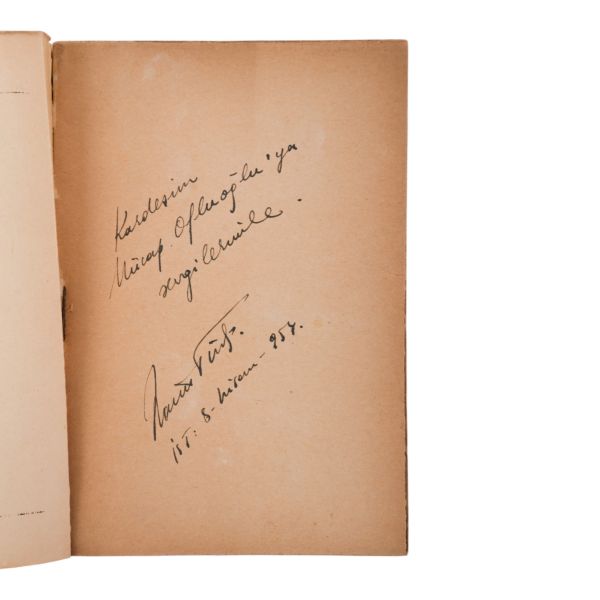 Kardeşim
Mücap. Ofluoğlu'ya
sevgilerimle.
Tarık Türk.
İST: 8- Nisan- 954.